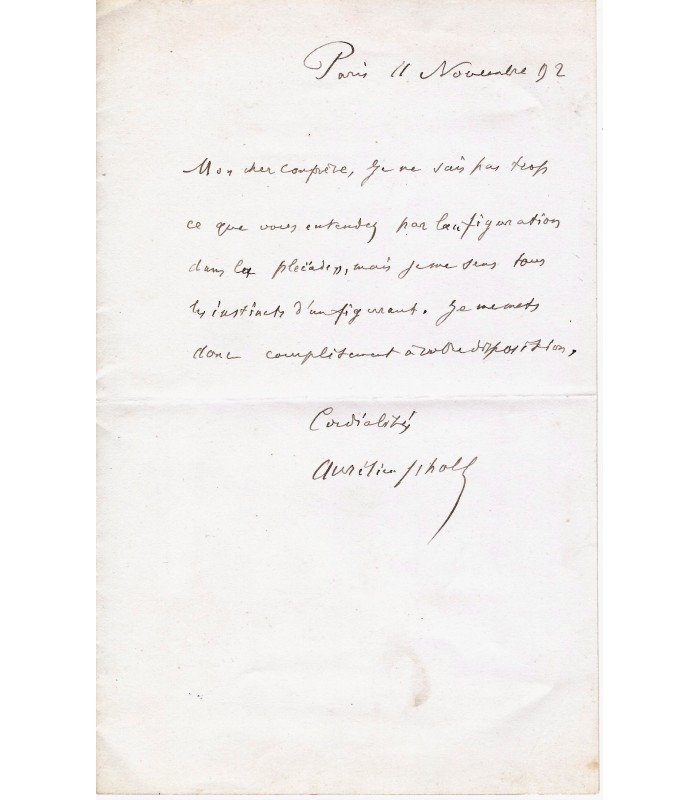 Paris 11 Novembre 92
Mon cher confrère, Je ne sais pas trop
ce que vous entendez par la « figuration
dans la pleïade », mais je me sens tous
les instincts d'un figurant. Je me mets
donc complètement à votre disposition,
Cordialités
Aurélien Scholl